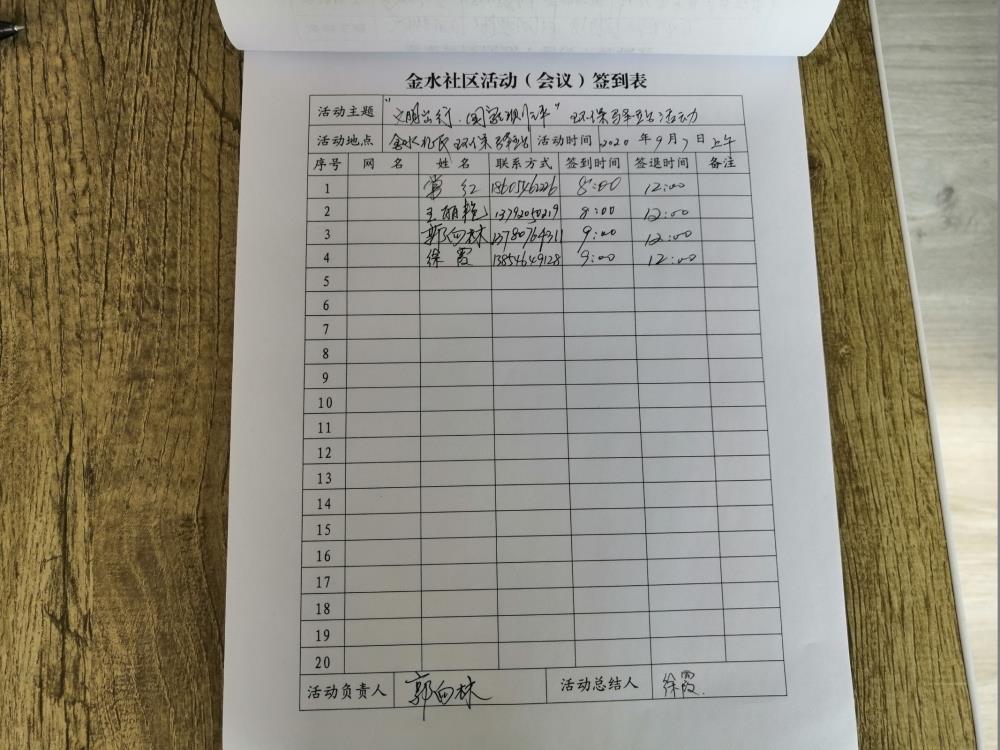 金水社区活动（会议）签到表
活动主题 "文明出行·国家现 环保 活动
活动地点 金水 环保 活动时间 2020年9月7日上午
序号 网 名 姓 名 联系方式 签到时间 签退时间 备注
1 常 红 8:00 12:00
2 王丽艳 13792050219 8:00 12:00
3 郭向林 13780764311 9:00 12:00
4 徐 霞 13854649128 9:00 12:00
5
6
7
8
9
10
11
12
13
14
15
16
17
18
19
20
活动负责人 郭向林 活动总结人 徐霞.